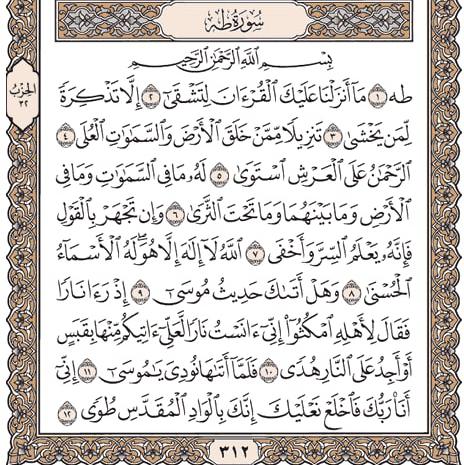 سُورَةُ طه
بِسْمِ اللَّهِ الرَّحْمَٰنِ الرَّحِيمِ
طه ١ مَآ أَنزَلْنَا عَلَيْكَ الْقُرْءَانَ لِتَشْقَىٰٓ ٢ إِلَّا تَذْكِرَةً
لِّمَن يَخْشَىٰ ٣ تَنزِيلًا مِّمَّنْ خَلَقَ الْأَرْضَ وَالسَّمَٰوَٰتِ الْعُلَى ٤
الرَّحْمَٰنُ عَلَى الْعَرْشِ اسْتَوَىٰ ٥ لَهُۥ مَا فِي السَّمَٰوَٰتِ وَمَا فِي
الْأَرْضِ وَمَا بَيْنَهُمَا وَمَا تَحْتَ الثَّرَىٰ ٦ وَإِن تَجْهَرْ بِالْقَوْلِ
فَإِنَّهُۥ يَعْلَمُ السِّرَّ وَأَخْفَى ٧ اللَّهُ لَآ إِلَٰهَ إِلَّا هُوَ ۖ لَهُ الْأَسْمَآءُ
الْحُسْنَىٰ ٨ وَهَلْ أَتَىٰكَ حَدِيثُ مُوسَىٰٓ ٩ إِذْ رَءَا نَارًا
فَقَالَ لِأَهْلِهِ امْكُثُوٓا۟ إِنِّيٓ ءَانَسْتُ نَارًا لَّعَلِّيٓ ءَاتِيكُم مِّنْهَا بِقَبَسٍ
أَوْ أَجِدُ عَلَى النَّارِ هُدًى ١٠ فَلَمَّآ أَتَىٰهَا نُودِيَ يَٰمُوسَىٰٓ ١١ إِنِّيٓ
أَنَا۠ رَبُّكَ فَاخْلَعْ نَعْلَيْكَ ۖ إِنَّكَ بِالْوَادِ الْمُقَدَّسِ طُوًى ١٢
الحِزْبُ
٣٢
٣١٢